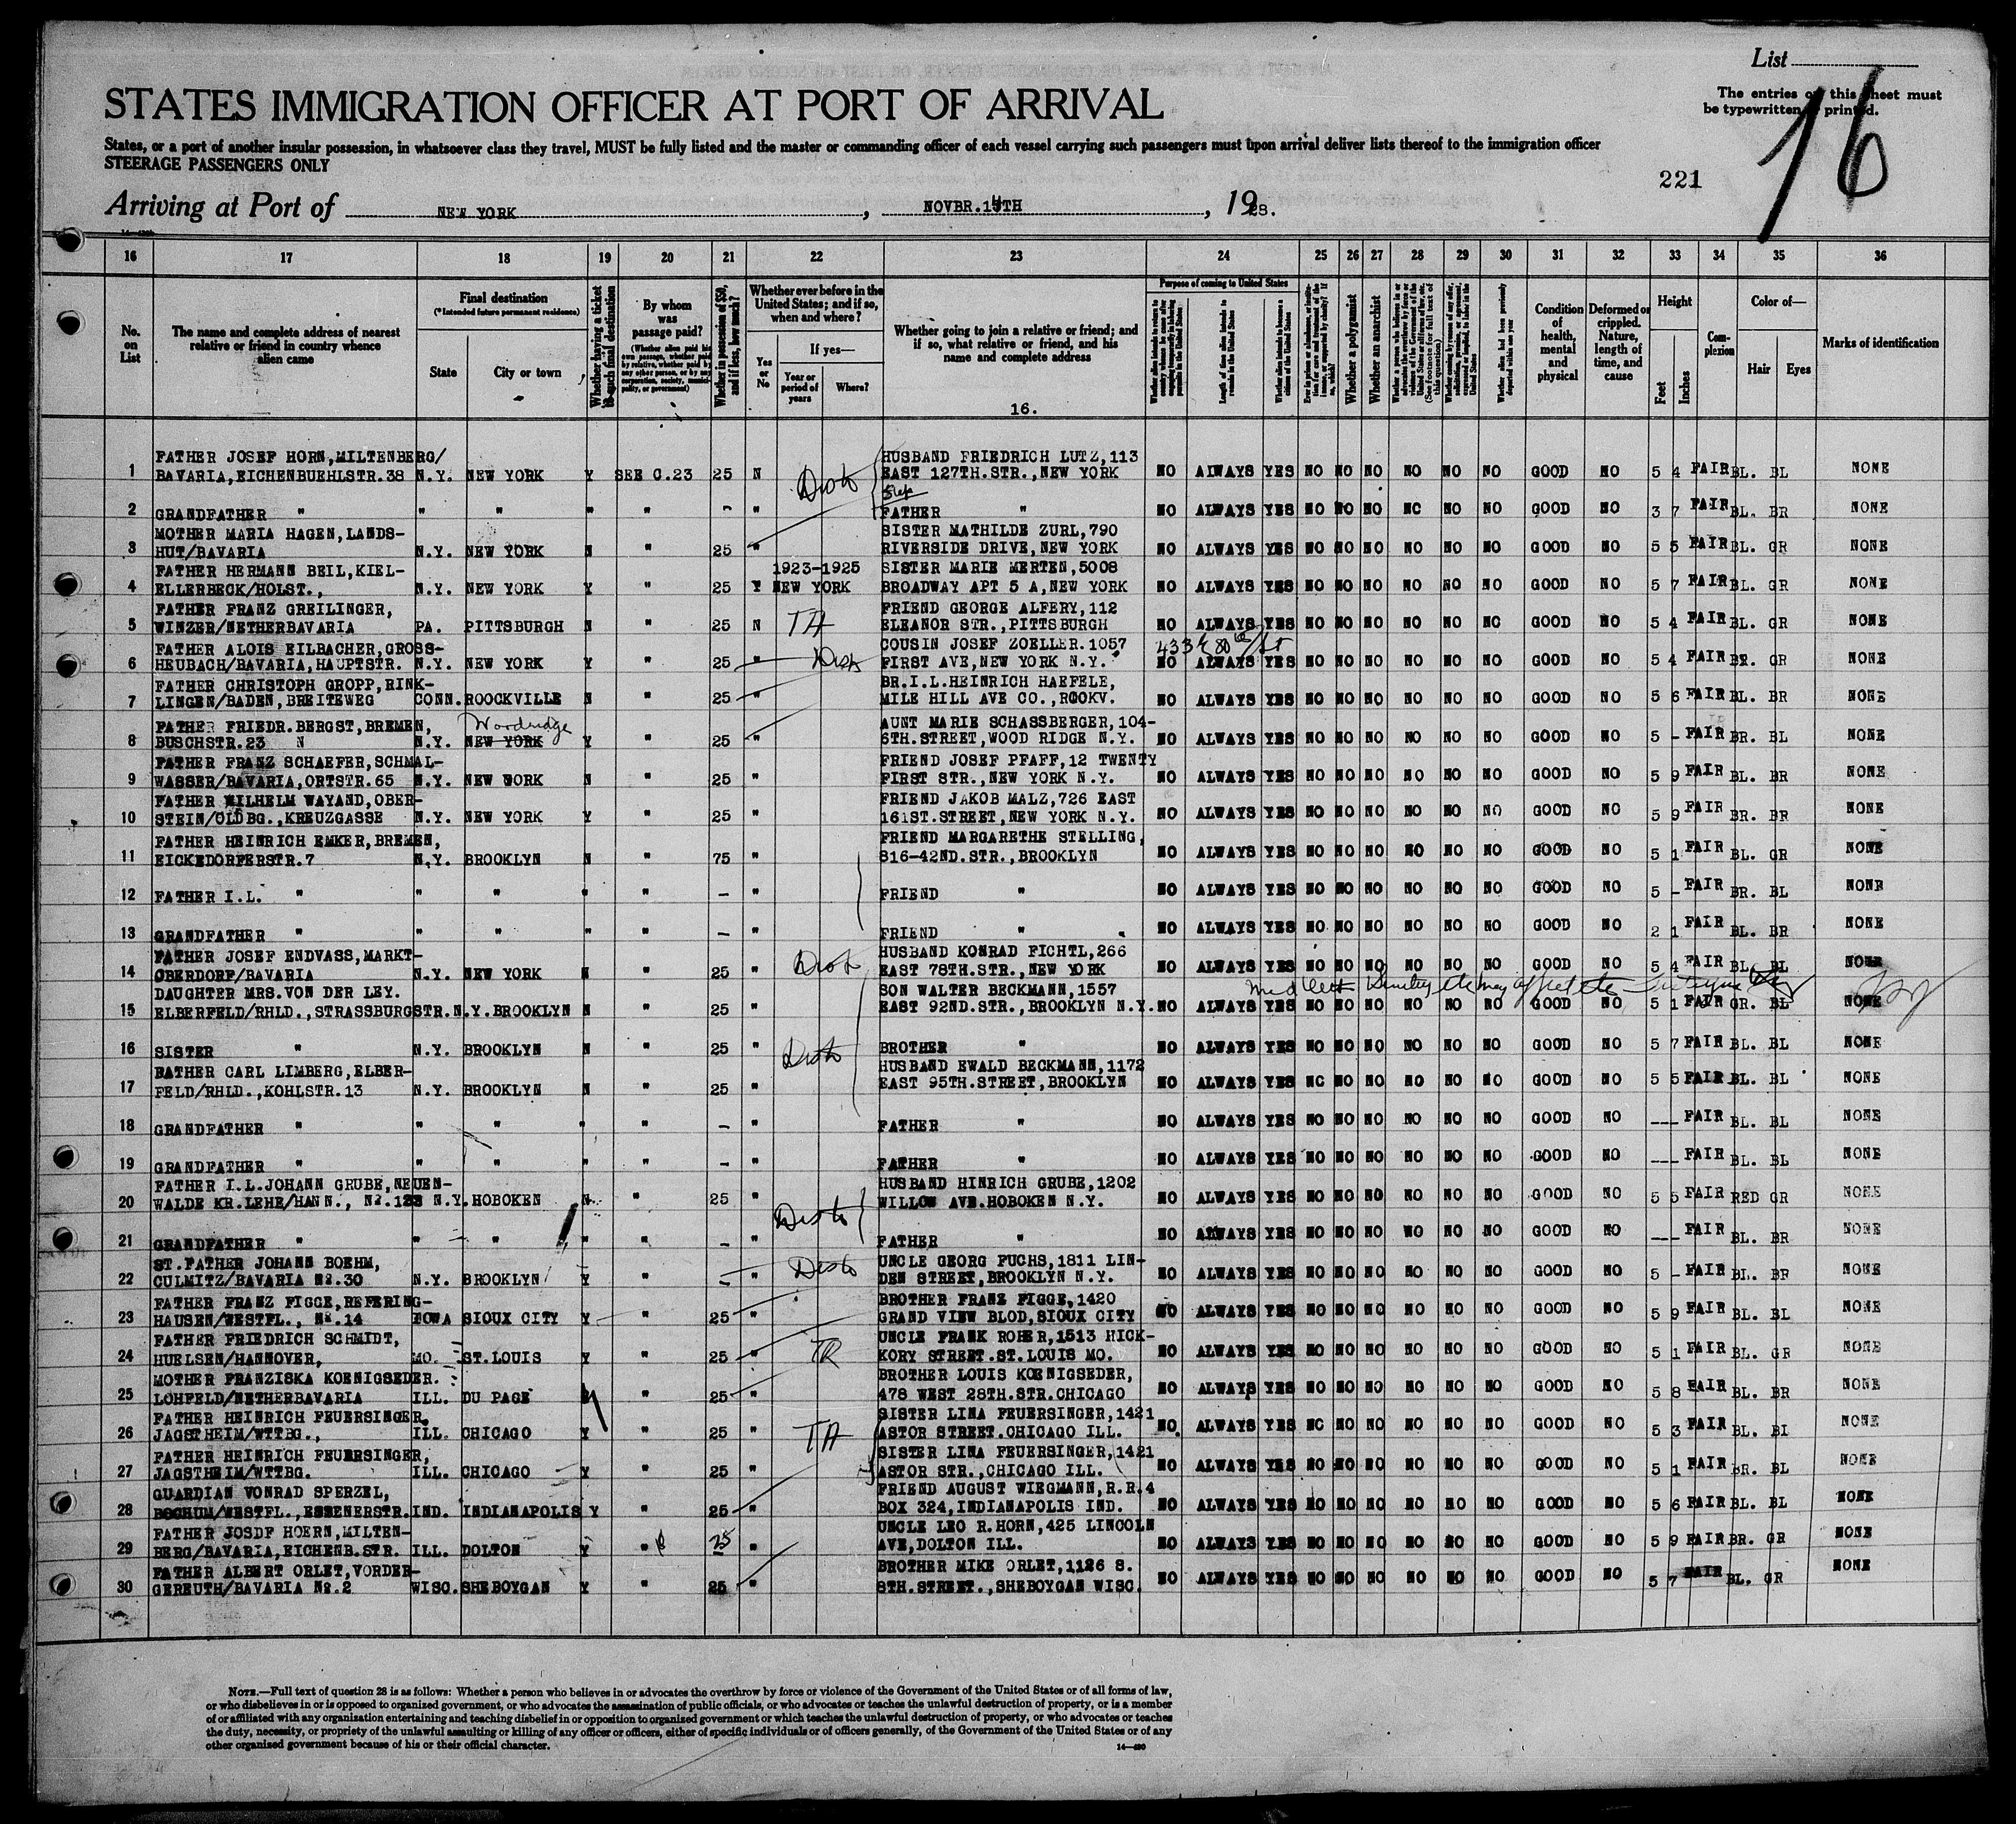 List
The entries on this sheet must
be typewritten or printed.
16
STATES IMMIGRATION OFFICER AT PORT OF ARRIVAL
States, or a port of another insular possession, in whatsoever class they travel, MUST be fully listed and the master or commanding officer of each vessel carrying such passengers must upon arrival deliver lists thereof to the immigration officer
STEERAGE PASSENGERS ONLY
221
Arriving at Port of NEW YORK, NOVBR.14TH, 1928.
16 17 18 19 20 21 22 23 24 25 26 27 28 29 30 31 32 33 34 35 36
No. on List
The name and complete address of nearest relative or friend in country whence alien came
Final destination
(*Intended future permanent residence)
State City or town
Whether having a ticket to such final destination
By whom was passage paid?
(Whether alien paid his own passage, whether paid by relative, whether paid by any other person, or by any corporation, society, municipality, or government)
Whether in possession of $50, and if less, how much?
Whether ever before in the United States; and if so, when and where?
Yes or No
If yes—
Year or period of years Where?
Whether going to join a relative or friend; and if so, what relative or friend, and his name and complete address
16.
Purpose of coming to United States
Length of time alien intends to remain in the United States
Whether alien intends to become a citizen of the United States
Whether a polygamist
Whether an anarchist
Condition of health, mental and physical
Deformed or crippled. Nature, length of time, and cause
Height
Feet Inches
Complexion
Color of—
Hair Eyes
Marks of identification
FATHER JOSEF HORN,MILTENBERG/ HUSBAND FRIEDRICH LUTZ,113
1 BAVARIA,EICHENBUEHLSTR.38 N.Y. NEW YORK Y SEE C.23 25 N EAST 127TH.STR.,NEW YORK NO ALWAYS YES NO NO NO NO NO NO GOOD NO 5 4 FAIR BL. BL NONE
Step
2 GRANDFATHER " " " " " - " FATHER " NO ALWAYS YES NO NO NO NO NO NO GOOD NO 3 7 FAIR BL. BR NONE
MOTHER MARIA HAGEN,LANDS- SISTER MATHILDE ZURL,790
3 HUT/BAVARIA N.Y. NEW YORK N " 25 " RIVERSIDE DRIVE,NEW YORK NO ALWAYS YES NO NO NO NO NO NO GOOD NO 5 5 FAIR BL. GR NONE
FATHER HERMANN BEIL,KIEL- 1923-1925 SISTER MARIE MERTEN,5008
4 ELLERBECK/HOLST., N.Y. NEW YORK Y " 25 Y NEW YORK BROADWAY APT 5 A,NEW YORK NO ALWAYS YES NO NO NO NO NO NO GOOD NO 5 7 FAIR BL. GR NONE
FATHER FRANZ GREILINGER, FRIEND GEORGE ALFERY,112
5 WINZER/NETHERBAVARIA PA. PITTSBURGH N " 25 N ELEANOR STR.,PITTSBURGH NO ALWAYS YES NO NO NO NO NO NO GOOD NO 5 4 FAIR BL. GR NONE
FATHER ALOIS EILBACHER,GROSS- COUSIN JOSEF ZOELLER.1057
6 HEUBACH/BAVARIA,HAUPTSTR. N.Y. NEW YORK Y " 25 " FIRST AVE,NEW YORK N.Y. NO ALWAYS YES NO NO NO NO NO NO GOOD NO 5 4 FAIR BR. GR NONE
FATHER CHRISTOPH GROPP,RINK- BR.I.L.HEINRICH HAEFELE,
7 LINGEN/BADEN,BREITEWEG CONN. ROOCKVILLE N " 25 " MILE HILL AVE CO.,ROOKV. NO ALWAYS YES NO NO NO NO NO NO GOOD NO 5 6 FAIR BL. BR NONE
FATHER FRIEDR.BERGST,BREMEN, Woodridge AUNT MARIE SCHASSBERGER,104-
8 BUSCHSTR.23 N N.Y. NEW YORK Y " 25 " 6TH.STREET,WOOD RIDGE N.Y. NO ALWAYS YES NO NO NO NO NO NO GOOD NO 5 - FAIR BR. BL NONE
FATHER FRANZ SCHAEFER,SCHMAL- FRIEND JOSEF PFAFF,12 TWENTY
9 WASSER/BAVARIA,ORTSTR.65 N.Y. NEW WORK N " 25 " FIRST STR.,NEW YORK N.Y. NO ALWAYS YES NO NO NO NO NO NO GOOD NO 5 9 FAIR BL. BR NONE
FATHER WILHELM WAYAND,OBER- FRIEND JAKOB MALZ,726 EAST
10 STEIN/OLDBG.,KREUZGASSE N.Y. NEW YORK Y " 25 " 161ST.STREET,NEW YORK N.Y. NO ALWAYS YES NO NO NO NO NO NO GOOD NO 5 9 FAIR BR. BR NONE
FATHER HEINRICH EMKER,BREMEN, FRIEND MARGARETHE STELLING,
11 EICKEDORFERSTR.7 N.Y. BROOKLYN N " 75 " 816-42ND.STR.,BROOKLYN NO ALWAYS YES NO NO NO NO NO NO GOOD NO 5 1 FAIR BL. GR NONE
12 FATHER I.L. " " " " " - " FRIEND " NO ALWAYS YES NO NO NO NO NO NO GOOD NO 5 - FAIR BR. BL NONE
13 GRANDFATHER " " " " " - " FRIEND " NO ALWAYS YES NO NO NO NO NO NO GOOD NO 2 1 FAIR BL. BR NONE
FATHER JOSEF ENDVASS,MARKT- HUSBAND KONRAD FICHTL,266
14 OBERDORF/BAVARIA N.Y. NEW YORK N " 25 " EAST 78TH.STR.,NEW YORK NO ALWAYS YES NO NO NO NO NO NO GOOD NO 5 4 FAIR BL. BL NONE
DAUGHTER MRS.VON DER LEY. SON WALTER BECKMANN,1557
15 ELBERFELD/RHLD.,STRASSBURGSTR. N.Y. BROOKLYN N " 25 " EAST 92ND.STR.,BROOKLYN N.Y. NO ALWAYS YES NO NO NO NO NO NO GOOD NO 5 1 FAIR GR. BL NONE
16 SISTER " N.Y. BROOKLYN N " 25 " BROTHER " NO ALWAYS YES NO NO NO NO NO NO GOOD NO 5 7 FAIR BL. BL NONE
FATHER CARL LIMBERG,ELBER- HUSBAND EWALD BECKMANN,1172
17 FELD/RHLD.,KOHLSTR.13 N.Y. BROOKLYN N " 25 " EAST 95TH.STREET,BROOKLYN NO ALWAYS YES NO NO NO NO NO NO GOOD NO 5 5 FAIR BL. BL NONE
18 GRANDFATHER " " " " " - " FATHER " NO ALWAYS YES NO NO NO NO NO NO GOOD NO --- FAIR BL. BL NONE
19 GRANDFATHER " " " " " - " FATHER " NO ALWAYS YES NO NO NO NO NO NO GOOD NO --- FAIR BL. BL NONE
FATHER I.L.JOHANN GRUBE,NEUEN- HUSBAND HINRICH GRUBE,1202
20 WALDE KR.LEHE/HANN., N.Y. HOBOKEN N " 25 " WILLOW AVE.HOBOKEN N.Y. NO ALWAYS YES NO NO NO NO NO NO GOOD NO 5 5 FAIR RED GR NONE
21 GRANDFATHER " " " " " - " FATHER " NO ALWAYS YES NO NO NO NO NO NO GOOD NO --- FAIR BL. BR NONE
ST.FATHER JOHANN BOEHM, UNCLE GEORG FUCHS,1811 LIN-
22 CULMITZ/BAVARIA No.30 N.Y. BROOKLYN Y " - " DEN STREET,BROOKLYN N.Y. NO ALWAYS YES NO NO NO NO NO NO GOOD NO 5 - FAIR BL. BR NONE
FATHER FRANZ FIGGE,REFERING- BROTHER FRANZ FIGGE,1420
23 HAUSEN/WESTFL., No.14 IOWA SIOUX CITY Y " 25 " GRAND VIEW BLOD,SIOUX CITY NO ALWAYS YES NO NO NO NO NO NO GOOD NO 5 9 FAIR BL. BL NONE
FATHER FRIEDRICH SCHMIDT, UNCLE FRANK ROHER,1513 HICK-
24 HUELSEN/HANNOVER, MO. ST.LOUIS Y " 25 " KORY STREET.ST.LOUIS MO. NO ALWAYS YES NO NO NO NO NO NO GOOD NO 5 1 FAIR BL. GR NONE
MOTHER FRANZISKA KOENIGSEDER. BROTHER LOUIS KOENIGSEDER,
25 LOHFELD/NETHERBAVARIA ILL. DU PAGE " 25 " 478 WEST 28TH.STR.CHICAGO NO ALWAYS YES NO NO NO NO NO NO GOOD NO 5 8 FAIR BL. BR NONE
FATHER HEINRICH FEUERSINGER, SISTER LINA FEUERSINGER,1421
26 JAGSTHEIM/WTTBG., ILL. CHICAGO Y " 25 " ASTOR STREET.CHICAGO ILL. NO ALWAYS YES NO NO NO NO NO NO GOOD NO 5 3 FAIR BL. Bl NONE
FATHER HEINRICH FEUERSINGER, SISTER LINA FEUERSINGER,1421
27 JAGSTHEIM/WTTBG. ILL. CHICAGO Y " 25 " ASTOR STR.,CHICAGO ILL. NO ALWAYS YES NO NO NO NO NO NO GOOD NO 5 1 FAIR BR. BL NONE
GUARDIAN VONRAD SPERZEL, FRIEND AUGUST WIEGMANN,R.R.4
28 BOCHUM/WESTFL.,ESSENERSTR. IND. INDIANAPOLIS Y " 25 " BOX 324,INDIANAPOLIS IND. NO ALWAYS YES NO NO NO NO NO NO GOOD NO 5 6 FAIR BL. BL NONE
FATHER JOSDF HOERN,MILTEN- UNCLE LEO R.HORN,425 LINCOLN
29 BERG/BAVARIA,EICHENB.STR. ILL. DOLTON Y " 25 " AVE,DOLTON ILL. NO ALWAYS YES NO NO NO NO NO NO GOOD NO 5 9 FAIR BR. GR NONE
FATHER ALBERT ORLET,VORDER- BROTHER MIKE ORLET,1126 S.
30 GEREUTH/BAVARIA No.2 WISC. SHEBOYGAN Y " 25 " 8TH.STREET.,SHEBOYGAN WISC. NO ALWAYS YES NO NO NO NO NO NO GOOD NO 5 7 FAIR BL. GR NONE
NOTE.—Full text of question 28 is as follows: Whether a person who believes in or advocates the overthrow by force or violence of the Government of the United States or of all forms of law,
or who disbelieves in or is opposed to organized government, or who advocates the assassination of public officials, or who advocates or teaches the unlawful destruction of property, or is a member
of or affiliated with any organization entertaining and teaching disbelief in or opposition to organized government or which teaches the unlawful destruction of property, or who advocates or teaches
the duty, necessity, or propriety of the unlawful assaulting or killing of any officer or officers, either of specific individuals or of officers generally, of the Government of the United States or of any
other organized government because of his or their official character.
14—430